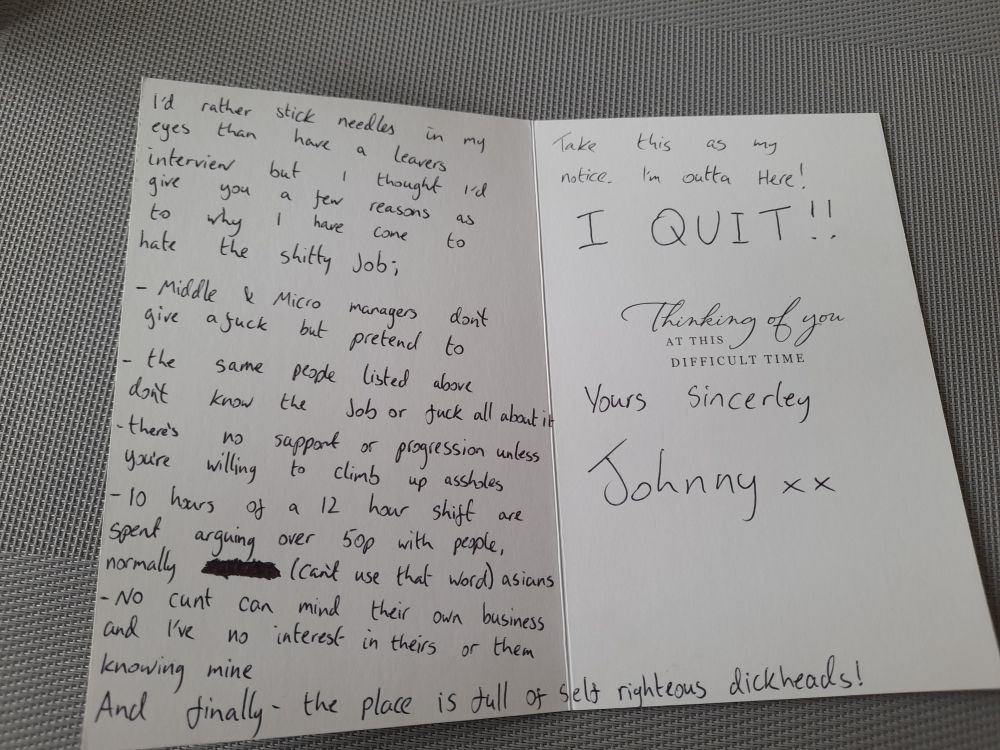 I'd rather stick needles in my
eyes than have a leavers
interview but I thought I'd
give you a few reasons as
to why I have come to
hate the shitty Job;
- Middle & Micro managers don't
give a fuck but pretend to
- the same people listed above
don't know the Job or fuck all about it
- there's no support or progression unless
you're willing to climb up assholes
- 10 hours of a 12 hour shift are
spent arguing over 50p with people,
normally (can't use that word) asians
- No cunt can mind their own business
and I've no interest in theirs or them
knowing mine
And finally - the place is full of self righteous dickheads!
Take this as my
notice. I'm outta Here!
I QUIT!!
Thinking of you
AT THIS
DIFFICULT TIME
Yours Sincerley
Johnny xx